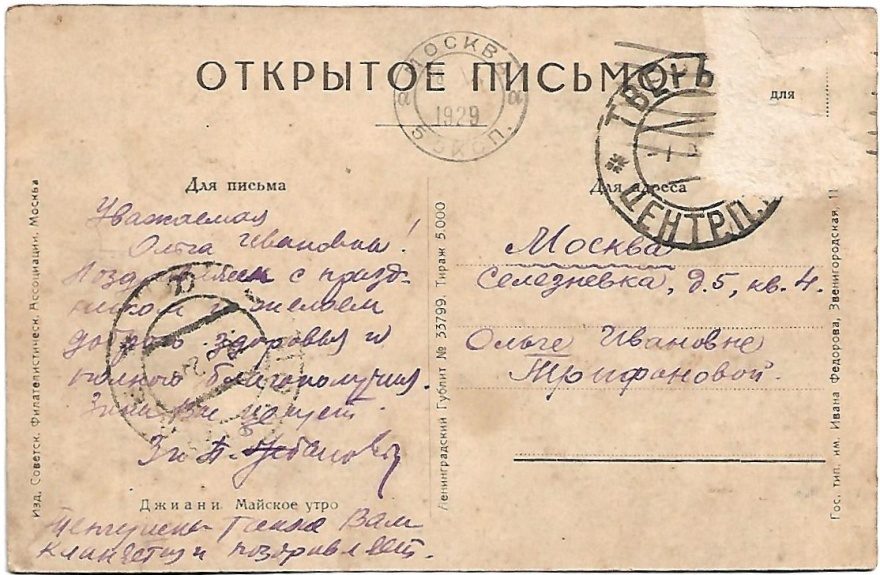 ОТКРЫТОЕ ПИСЬМО
для
МОСКВА
1929
5 ЭКСП.
ТВЕРЬ
ЦЕНТР.П.
Для письма
Уважаемая
Ольга Ивановна!
Поздравляем с празд-
ником и желаем
доброго здоровья и
полного благополучия.
Зина Вас целует.
Джиани. Майское утро
Вам
и поздравляет.
Изд. Советск. Филателистическ. Ассоциации. Москва
Ленинградский Гублит № 33799. Тираж 5.000
Для адреса
Москва
Селезневка, д. 5, кв. 4.
Ольге Ивановне
Трифоновой.
Гос. тип. им. Ивана Федорова, Звенигородская, 11